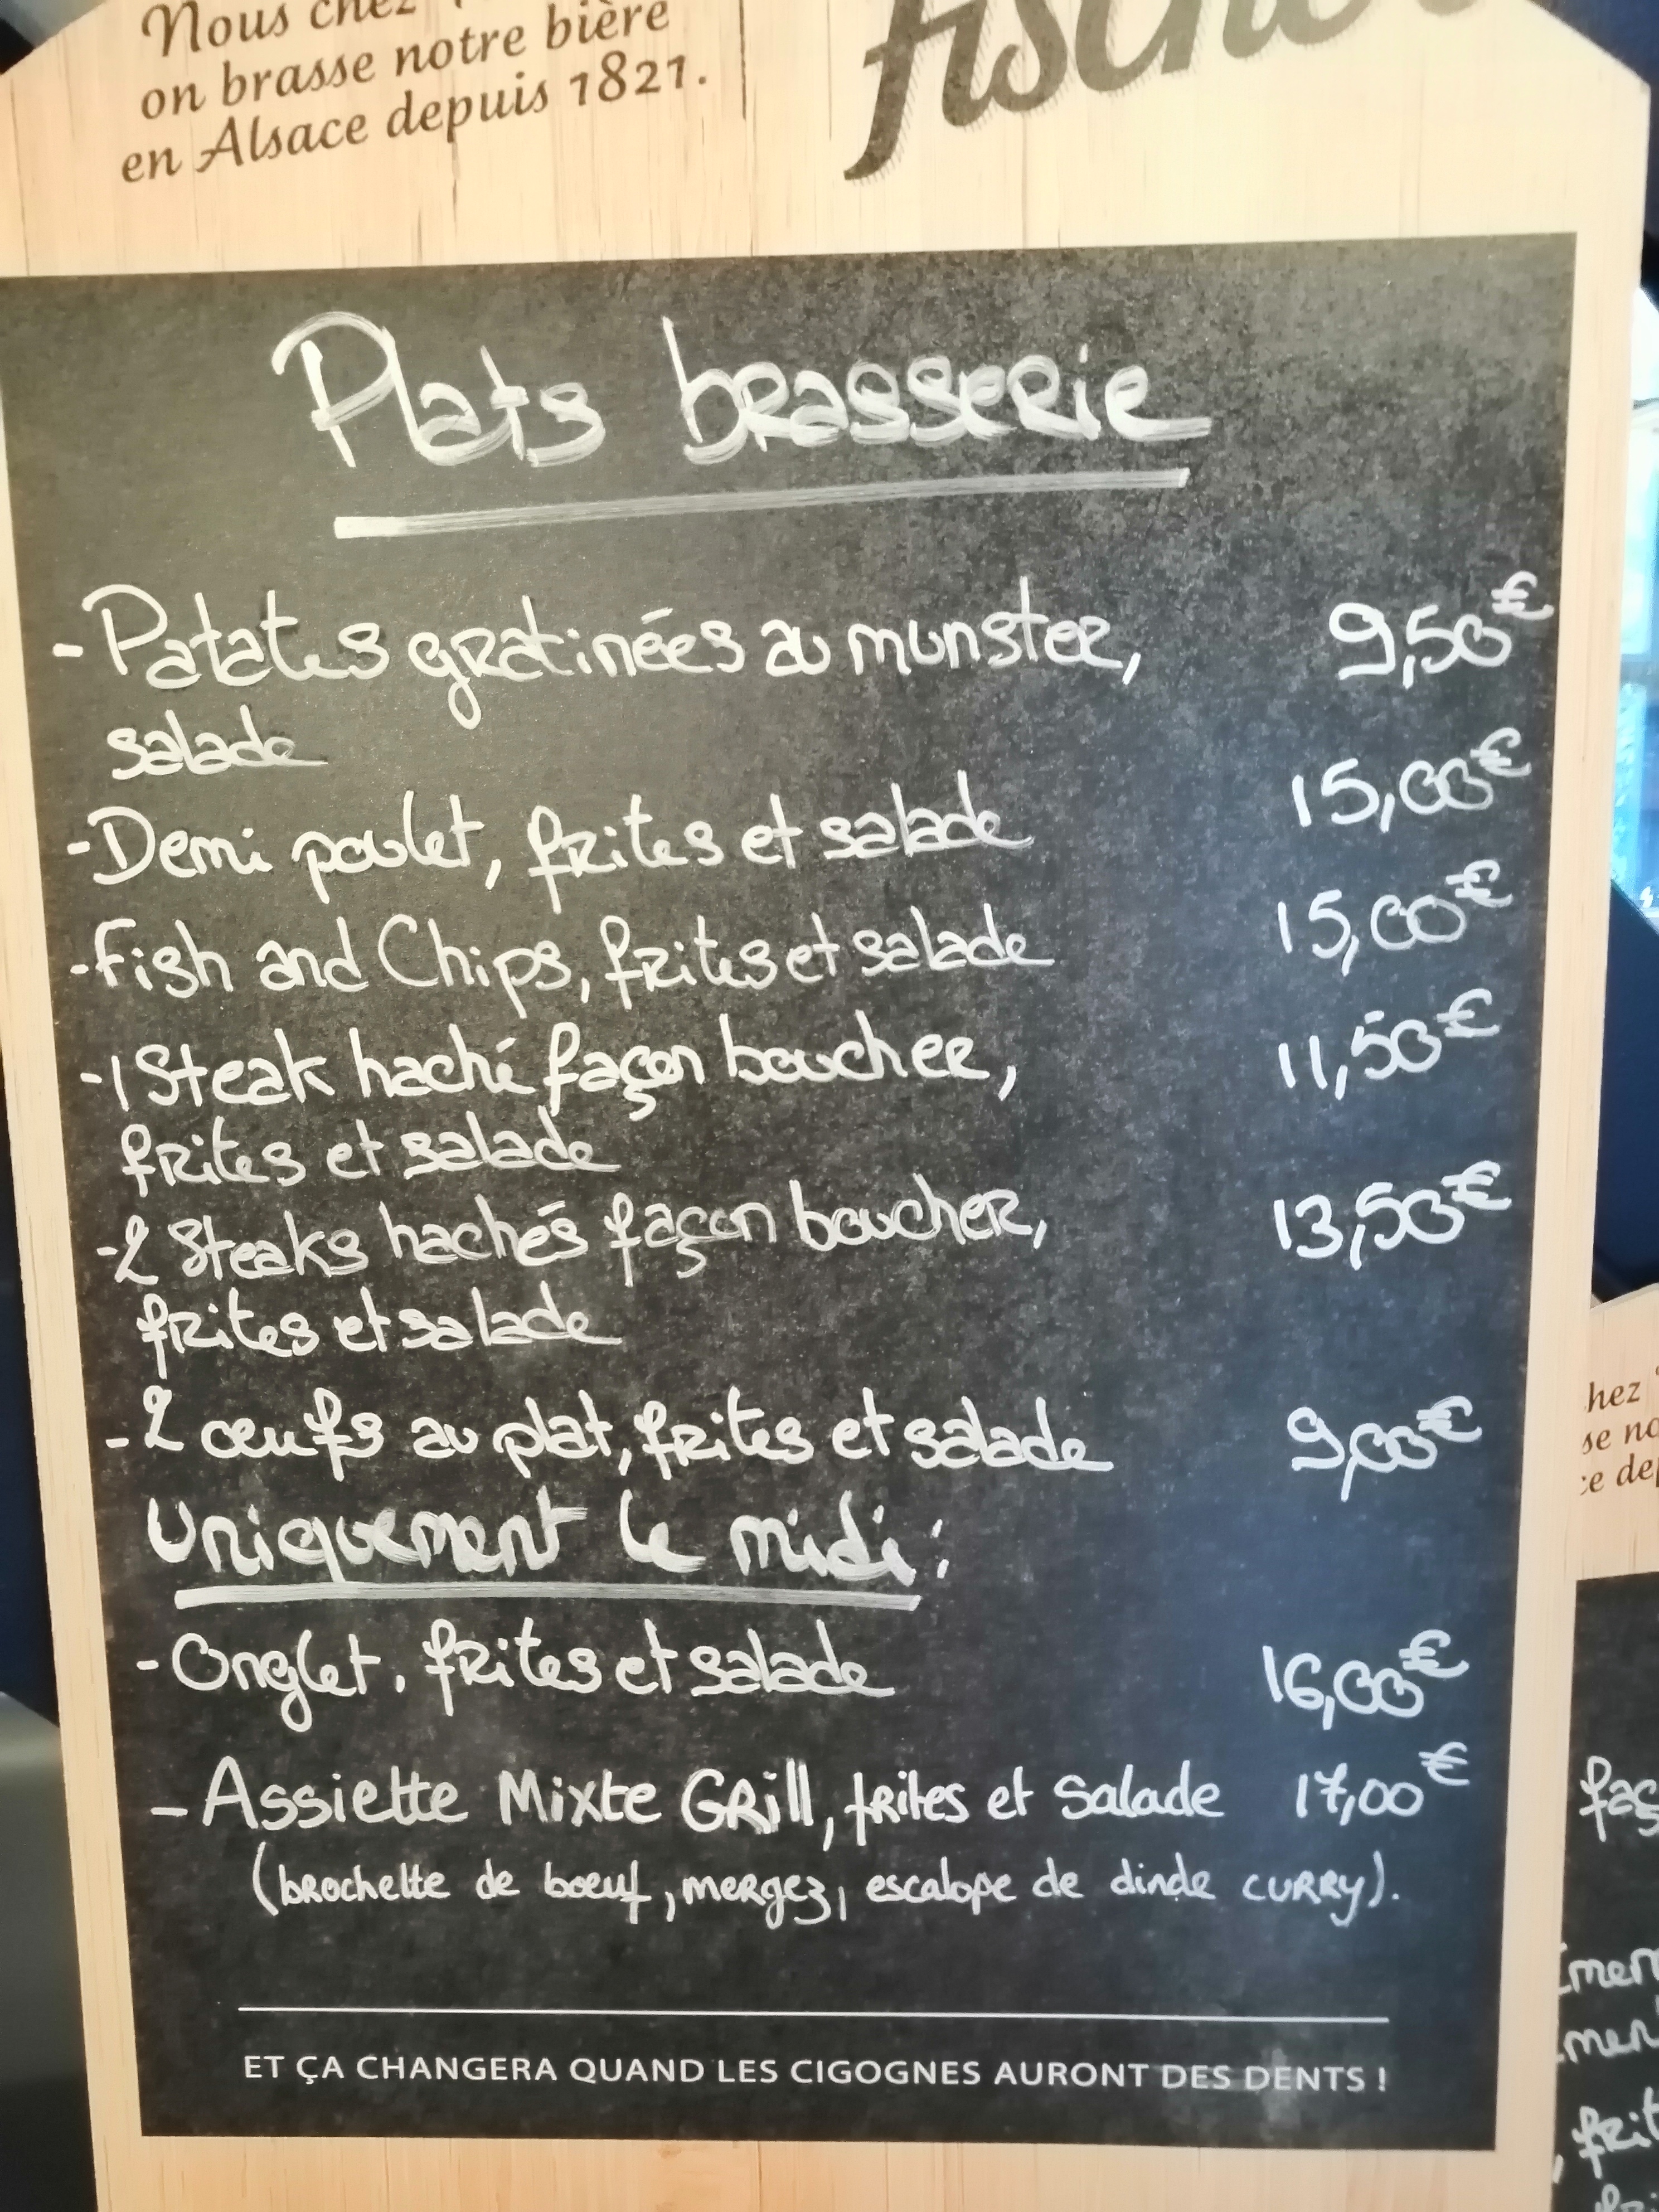 Nous chez
on brasse notre bière
en Alsace depuis 1821.
fischer
Plats brasserie
- Patates gratinées au munster, 9,50€
salade
- Demi poulet, frites et salade 15,00€
- Fish and Chips, frites et salade 15,00€
- 1 Steak haché façon boucher, 11,50€
frites et salade
- 2 Steaks hachés façon boucher, 13,50€
frites et salade
- 2 œufs au plat, frites et salade 9,00€
Uniquement le midi :
- Onglet, frites et salade 16,00€
- Assiette Mixte Grill, frites et salade 17,00€
(brochette de boeuf, mergez, escalope de dinde curry).
ET ÇA CHANGERA QUAND LES CIGOGNES AURONT DES DENTS !